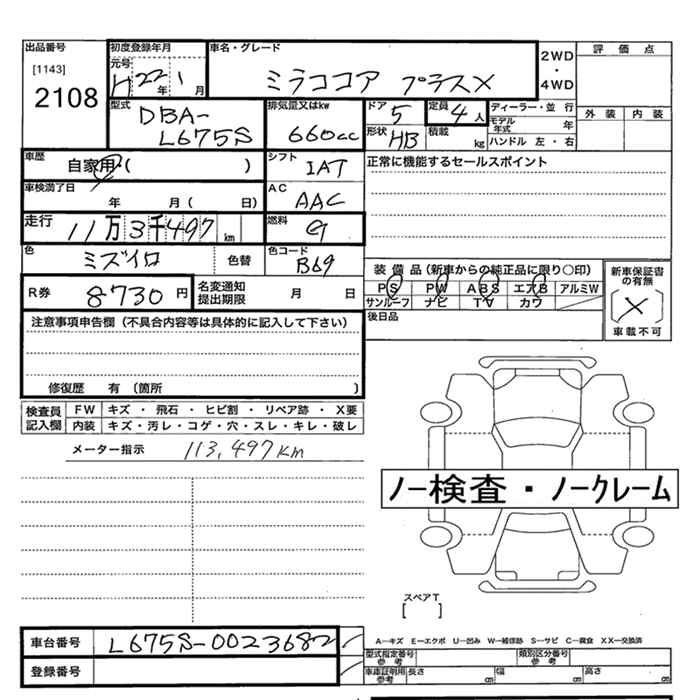 出品番号 初度登録年月 車名・グレード 2WD・4WD 評価点
[1143] 元号 H 22年 1月 ミラココア プラスX
2108 外装 内装
型式 DBA-L675S 排気量又はkw 660cc ドア 5 定員 4人 ディーラー・並行
形状 HB 積載 kg モデル年式 年
ハンドル 左・右
車歴 自家用( ) シフト IAT 正常に機能するセールスポイント
車検満了日 年 月( 日) AC AAC
走行 11万3千497km 燃料 G
色 ミズイロ 色替 色コード B69
装備品(新車からの純正品に限り○印) 新車保証書の有無
R券 8730円 名変通知提出期限 月 日 PS PW ABS エアB アルミW
サンルーフ ナビ TV カワ [×]
注意事項申告欄(不具合内容等は具体的に記入して下さい) 後日品 車載不可
修復歴 有(箇所 )
検査員記入欄 FW キズ・飛石・ヒビ割・リペア跡・X要
内装 キズ・汚レ・コゲ・穴・スレ・キレ・破レ
メーター指示 113,497km
ノー検査・ノークレーム
スペアT
[ ]
車台番号 L675S-0023682 A-キズ E-エクボ U-凹み W-補修跡 S-サビ C-腐食 XX-交換済
型式指定番号 参考 類別区分番号 参考
登録番号 車庫証明用参考 長さ cm 幅 cm 高さ cm